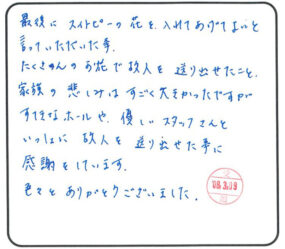 最後に スイトピーの 花を 入れてあげてよいと
言っていただいた事.
たくさんの お花で 故人を 送り出せたこと.
家族の 悲しみは すごく 大きかったですが
すてきなホールや. 優しいスタッフさんと
いっしょに 故人を 送り出せた事に
感謝をしています.
色々と ありがとうございました.